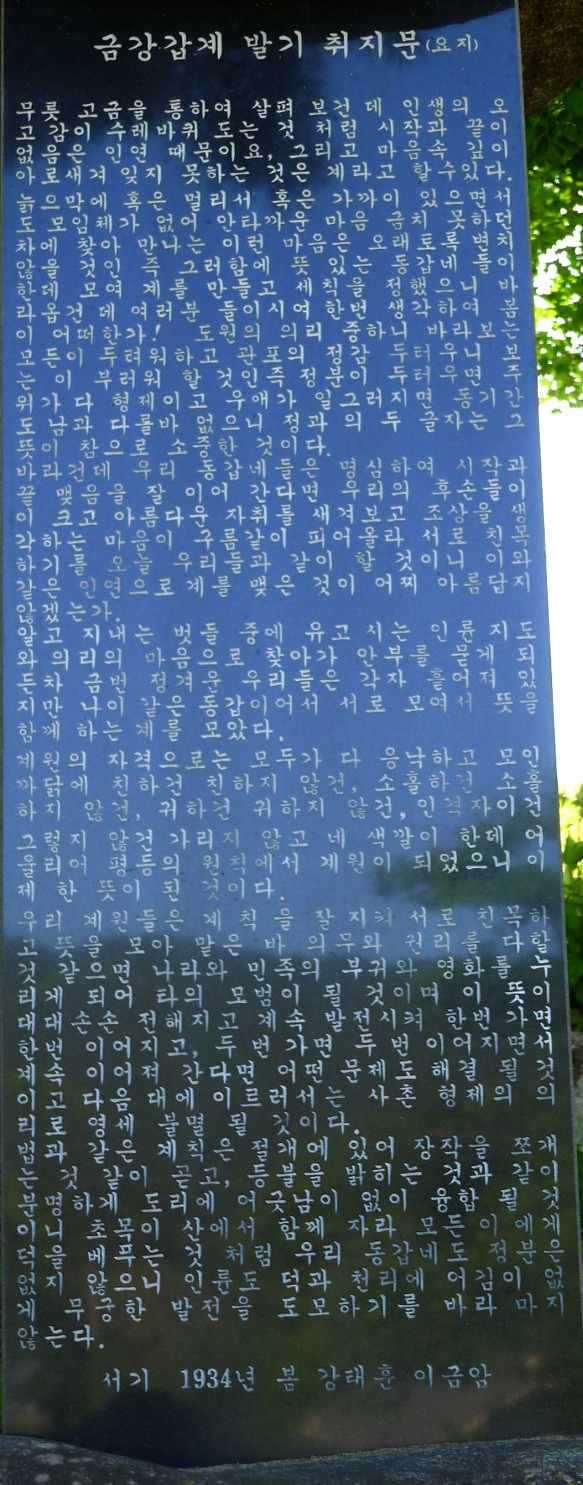 금강갑계 발기 취지문(요지)
무릇 고금을 통하여 살펴 보건 데 인생의 오
고 감이 수레바퀴 도는 것 처럼 시작과 끝이
없음은 인연 때문이요, 그리고 마음속 깊이
아로새겨 잊지 못하는 것은 계라고 할수있다.
늙으막에 혹은 멀리서 혹은 가까이 있으면서
도 모임체가 없어 안타까운 마음 금치 못하던
차에 찾아 만나는 이런 마음은 오래토록 변치
않을 것인 즉 그러함에 뜻 있는 동갑네 들이
한데 모여 계를 만들고 세칙을 정했으니 바
라옵건데 여러분 들이시여 한번 생각하여 봄
이 어떠한가! 도원의 의리 중하니 바라보는
모든이 두려워하고 관포의 정감 두터우니 보
는 이 부러워 할 것인즉 정분이 두터우면 주
위가 다 형제이고 우애가 일그러지면 동기간
도 남과 다를바 없으니 정과 의 두 글자는 그
뜻이 참으로 소중한 것이다.
바라건데 우리 동갑네들은 명심하여 시작과
끝 맺음을 잘 이어 간다면 우리의 후손들이
이 크고 아름다운 자취를 새겨보고 조상을 생
각하는 마음이 구름같이 피어올라 서로 친목
하기를 오늘 우리들과 같이 할 것이니 이와
같은 인연으로 계를 맺은 것이 어찌 아름답지
않겠는가.
알고 지내는 벗들 중에 유고 시는 인륜지도
와 의리의 마음으로 찾아가 안부를 묻게 되
든차 금번 정겨운 우리들은 각자 흩어져 있
지만 나이 같은 동갑이어서 서로 모여서 뜻을
함께 하는 계를 모았다.
계원의 자격으로는 모두가 다 응낙하고 모인
까닭에 친하건 친하지 않건, 소홀하건 소홀
하지 않건, 귀하건 귀하지 않건, 인격자이건
그렇지 않건 가리지 않고 네 색깔이 한데 어
울리어 평등의 원칙에서 계원이 되었으니 이
제 한 뜻이 된 것이다.
우리 계원들은 계칙을 잘지켜서로 친목하
고 뜻을 모아 맡은 바 의무와 권리를 다할
것 같으면 나라와 민족의 부귀와 영화를누
리게 되어 타의 모범이 될 것이며 이 뜻이
대대손손 전해지고 계속 발전시켜 한번가면
한번 이어지고, 두 번 가면 두 번 이어지면서
계속 이어져 간다면 어떤 문제도해결 될것
이고 다음 대에 이르러서는 사촌 형제의 의
리로 영세 불멸 될 것이다.
범과 같은 계칙은 절개에 있어 장작을 쪼개
는 것 같이 곧고, 등불을 밝히는 것과 같이
분명하게 도리에 어긋남이 없이 융합 될 것
이니 초목이 산에서 함께 자라 모든 이에게
덕을 베푸는 것 처럼 우리 동갑네도 정분은
없지 않으니 인륜도 덕과 천리에 어김이 없
게 무궁한 발전을 도모하기를 바라 마지
않는다.
서기 1934년 봄 강태훈 이금암